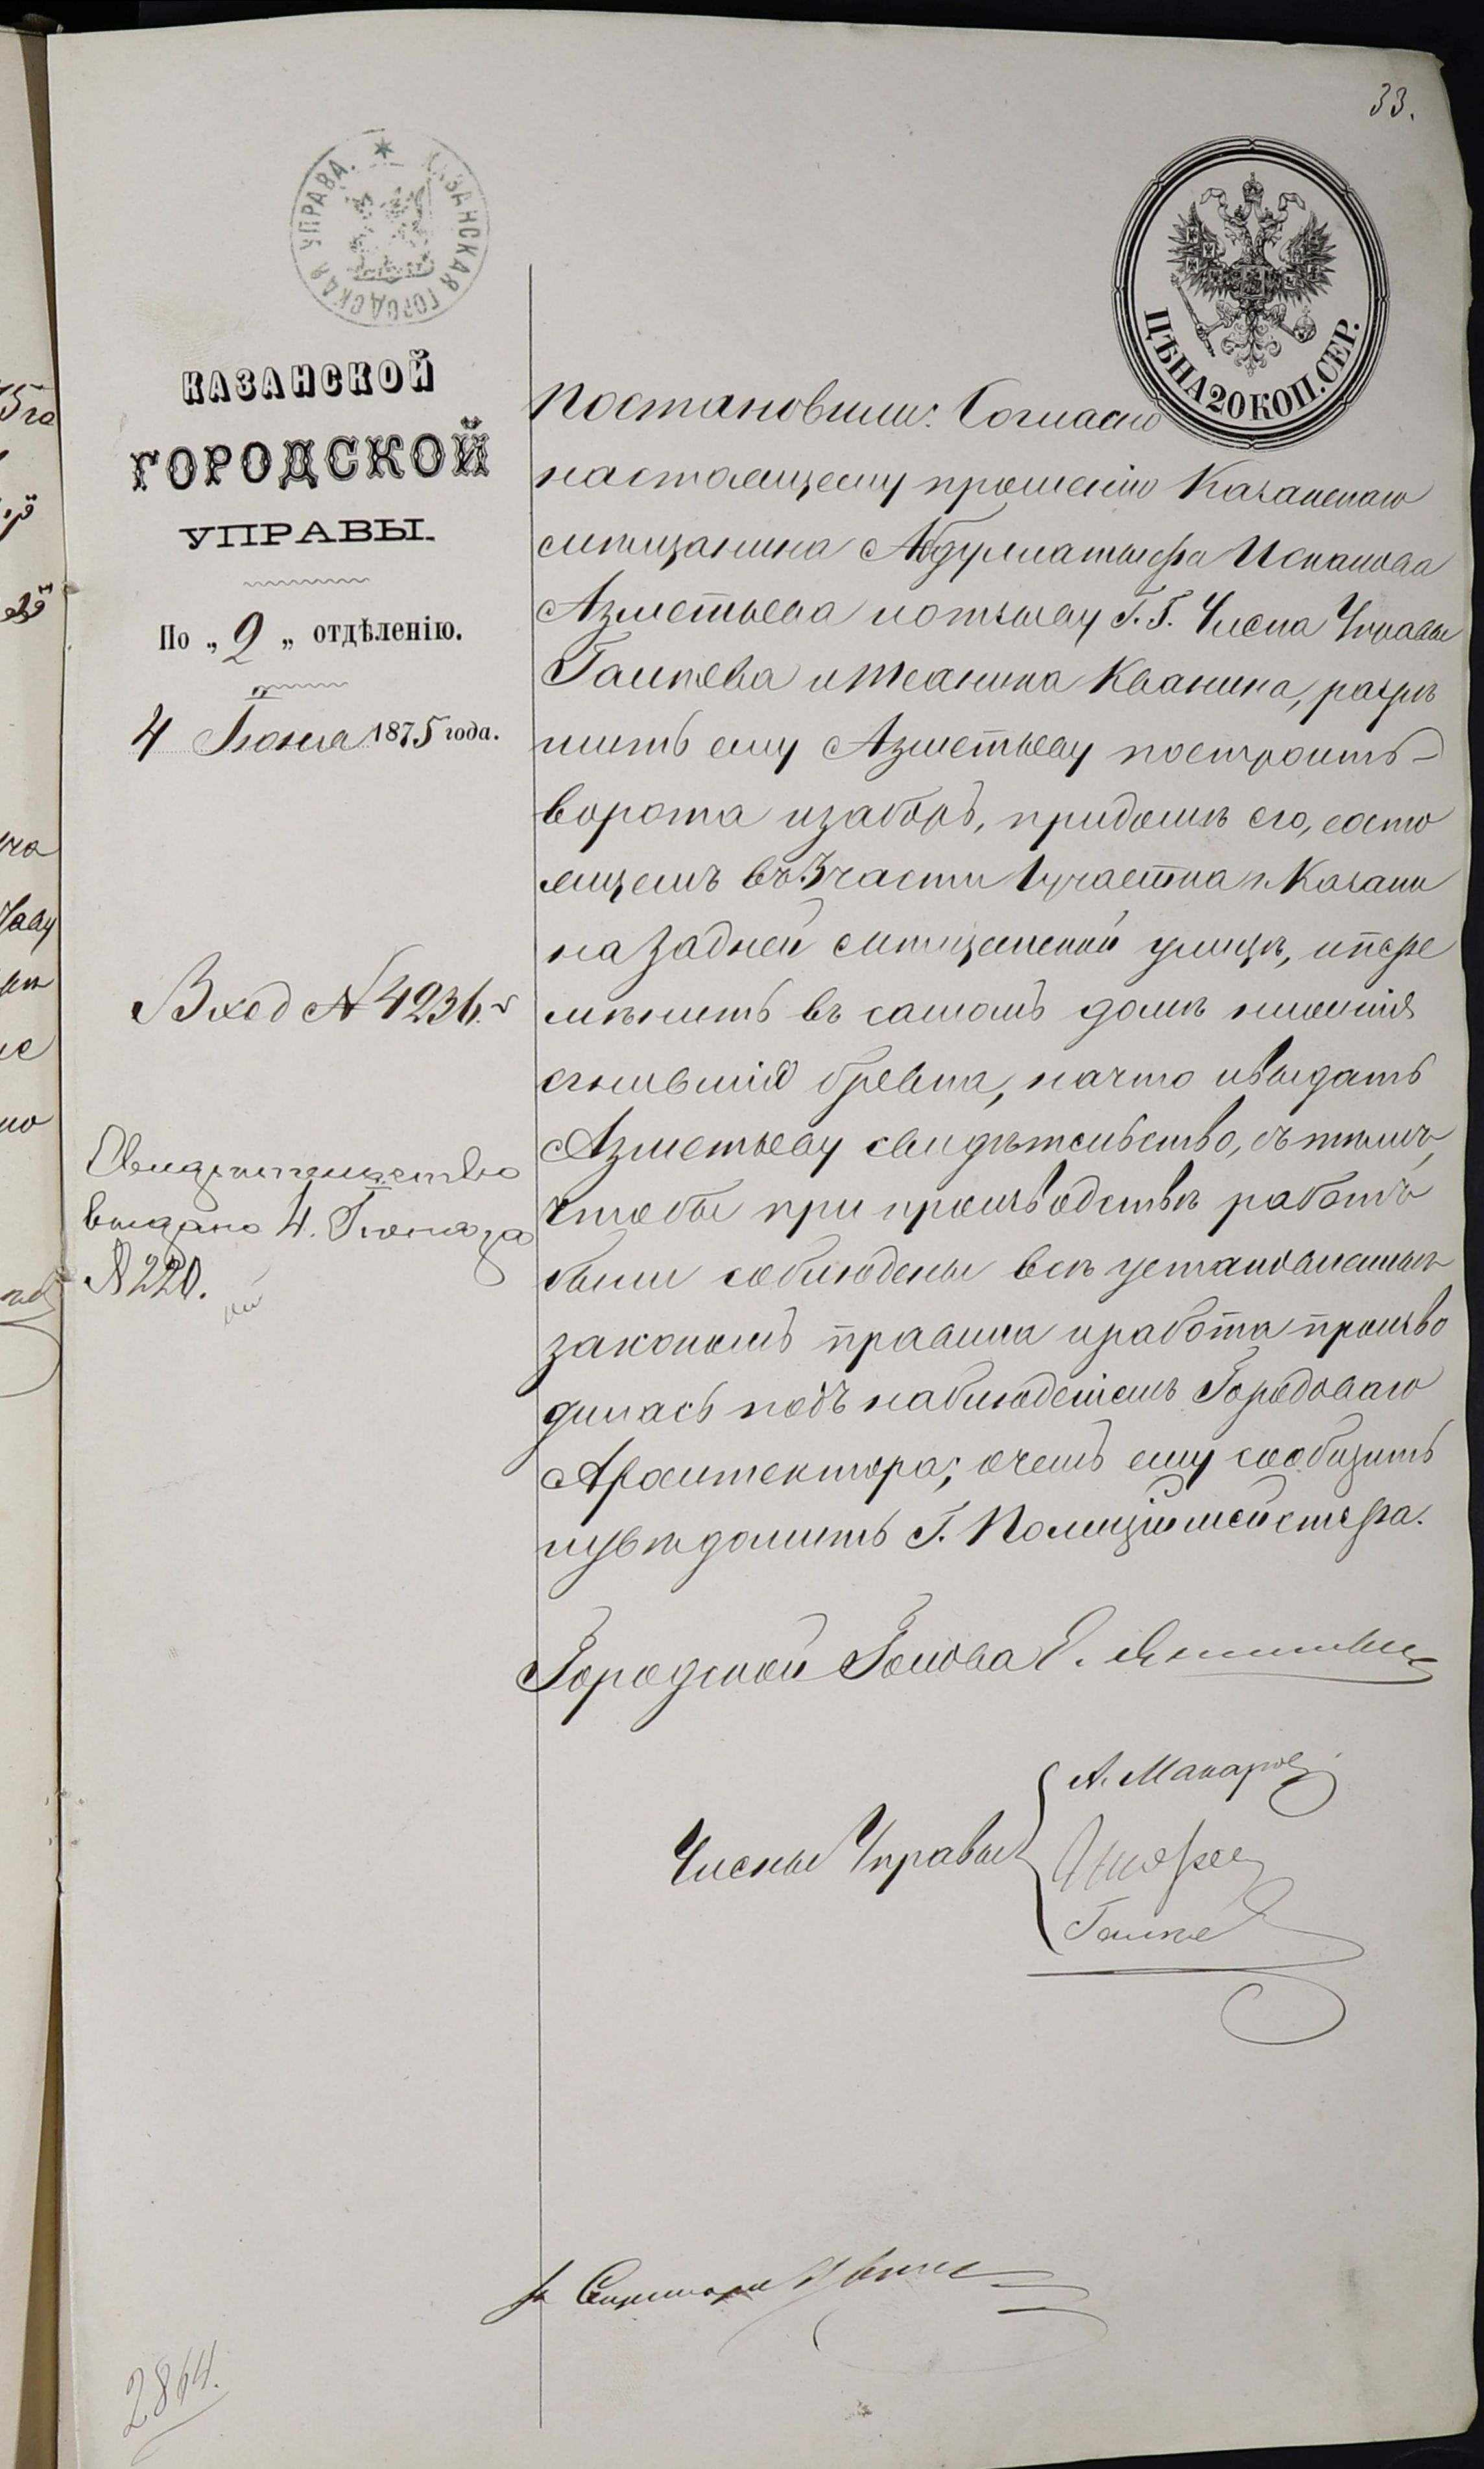 33.
КАЗАНСКАЯ ГОРОДСКАЯ УПРАВА.
ЦѢНА 20 КОП. СЕР.
КАЗАНСКОЙ
ГОРОДСКОЙ
УПРАВЫ.
По „2„ отдѣленію.
4 Іюня 1875 года.
Вход № 4236.
Свидѣтельство
выдано 4. Іюня за
№ 220.
Постановили: Согласно
настоящему прошенію Казанскаго
мѣщанина Абдуллатыфа Исхакова
Азметьева и отзыву Г.Г. Члена Управы
Галкева и Техника Кванина, разрѣ
шить ему Азметьеву построить
ворота и заборъ, при домѣ его, состо
ящемъ въ 3 части 1 участка г. Казани
на Задней Мѣщанской улицѣ, и пере
мѣнить въ самомъ домѣ нижнія
сгнившія бревна, на что и выдать
Азметьеву свидѣтельство, съ тѣмъ,
чтобы при производствѣ работъ
были соблюдены всѣ установленныя
закономъ правила и работа произво
дилась подъ наблюденіемъ Городоваго
Архитектора; о чемъ ему сообщить
и увѣдомить Г. Полиціймейстера.
Городской Голова Е.
Члены Управы
А. Макаров
Галке
Секретаря
2864.